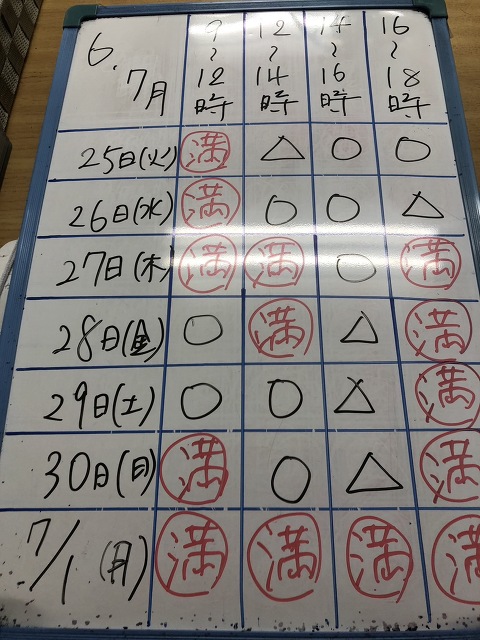 6.7月 9~12時 12~14時 14~16時 16~18時
25日(火) 満 △ ○ ○
26日(水) 満 ○ ○ △
27日(木) 満 満 ○ 満
28日(金) ○ 満 △ 満
29日(土) ○ ○ △ 満
30日(日) 満 ○ △ 満
7/1(月) 満 満 満 満